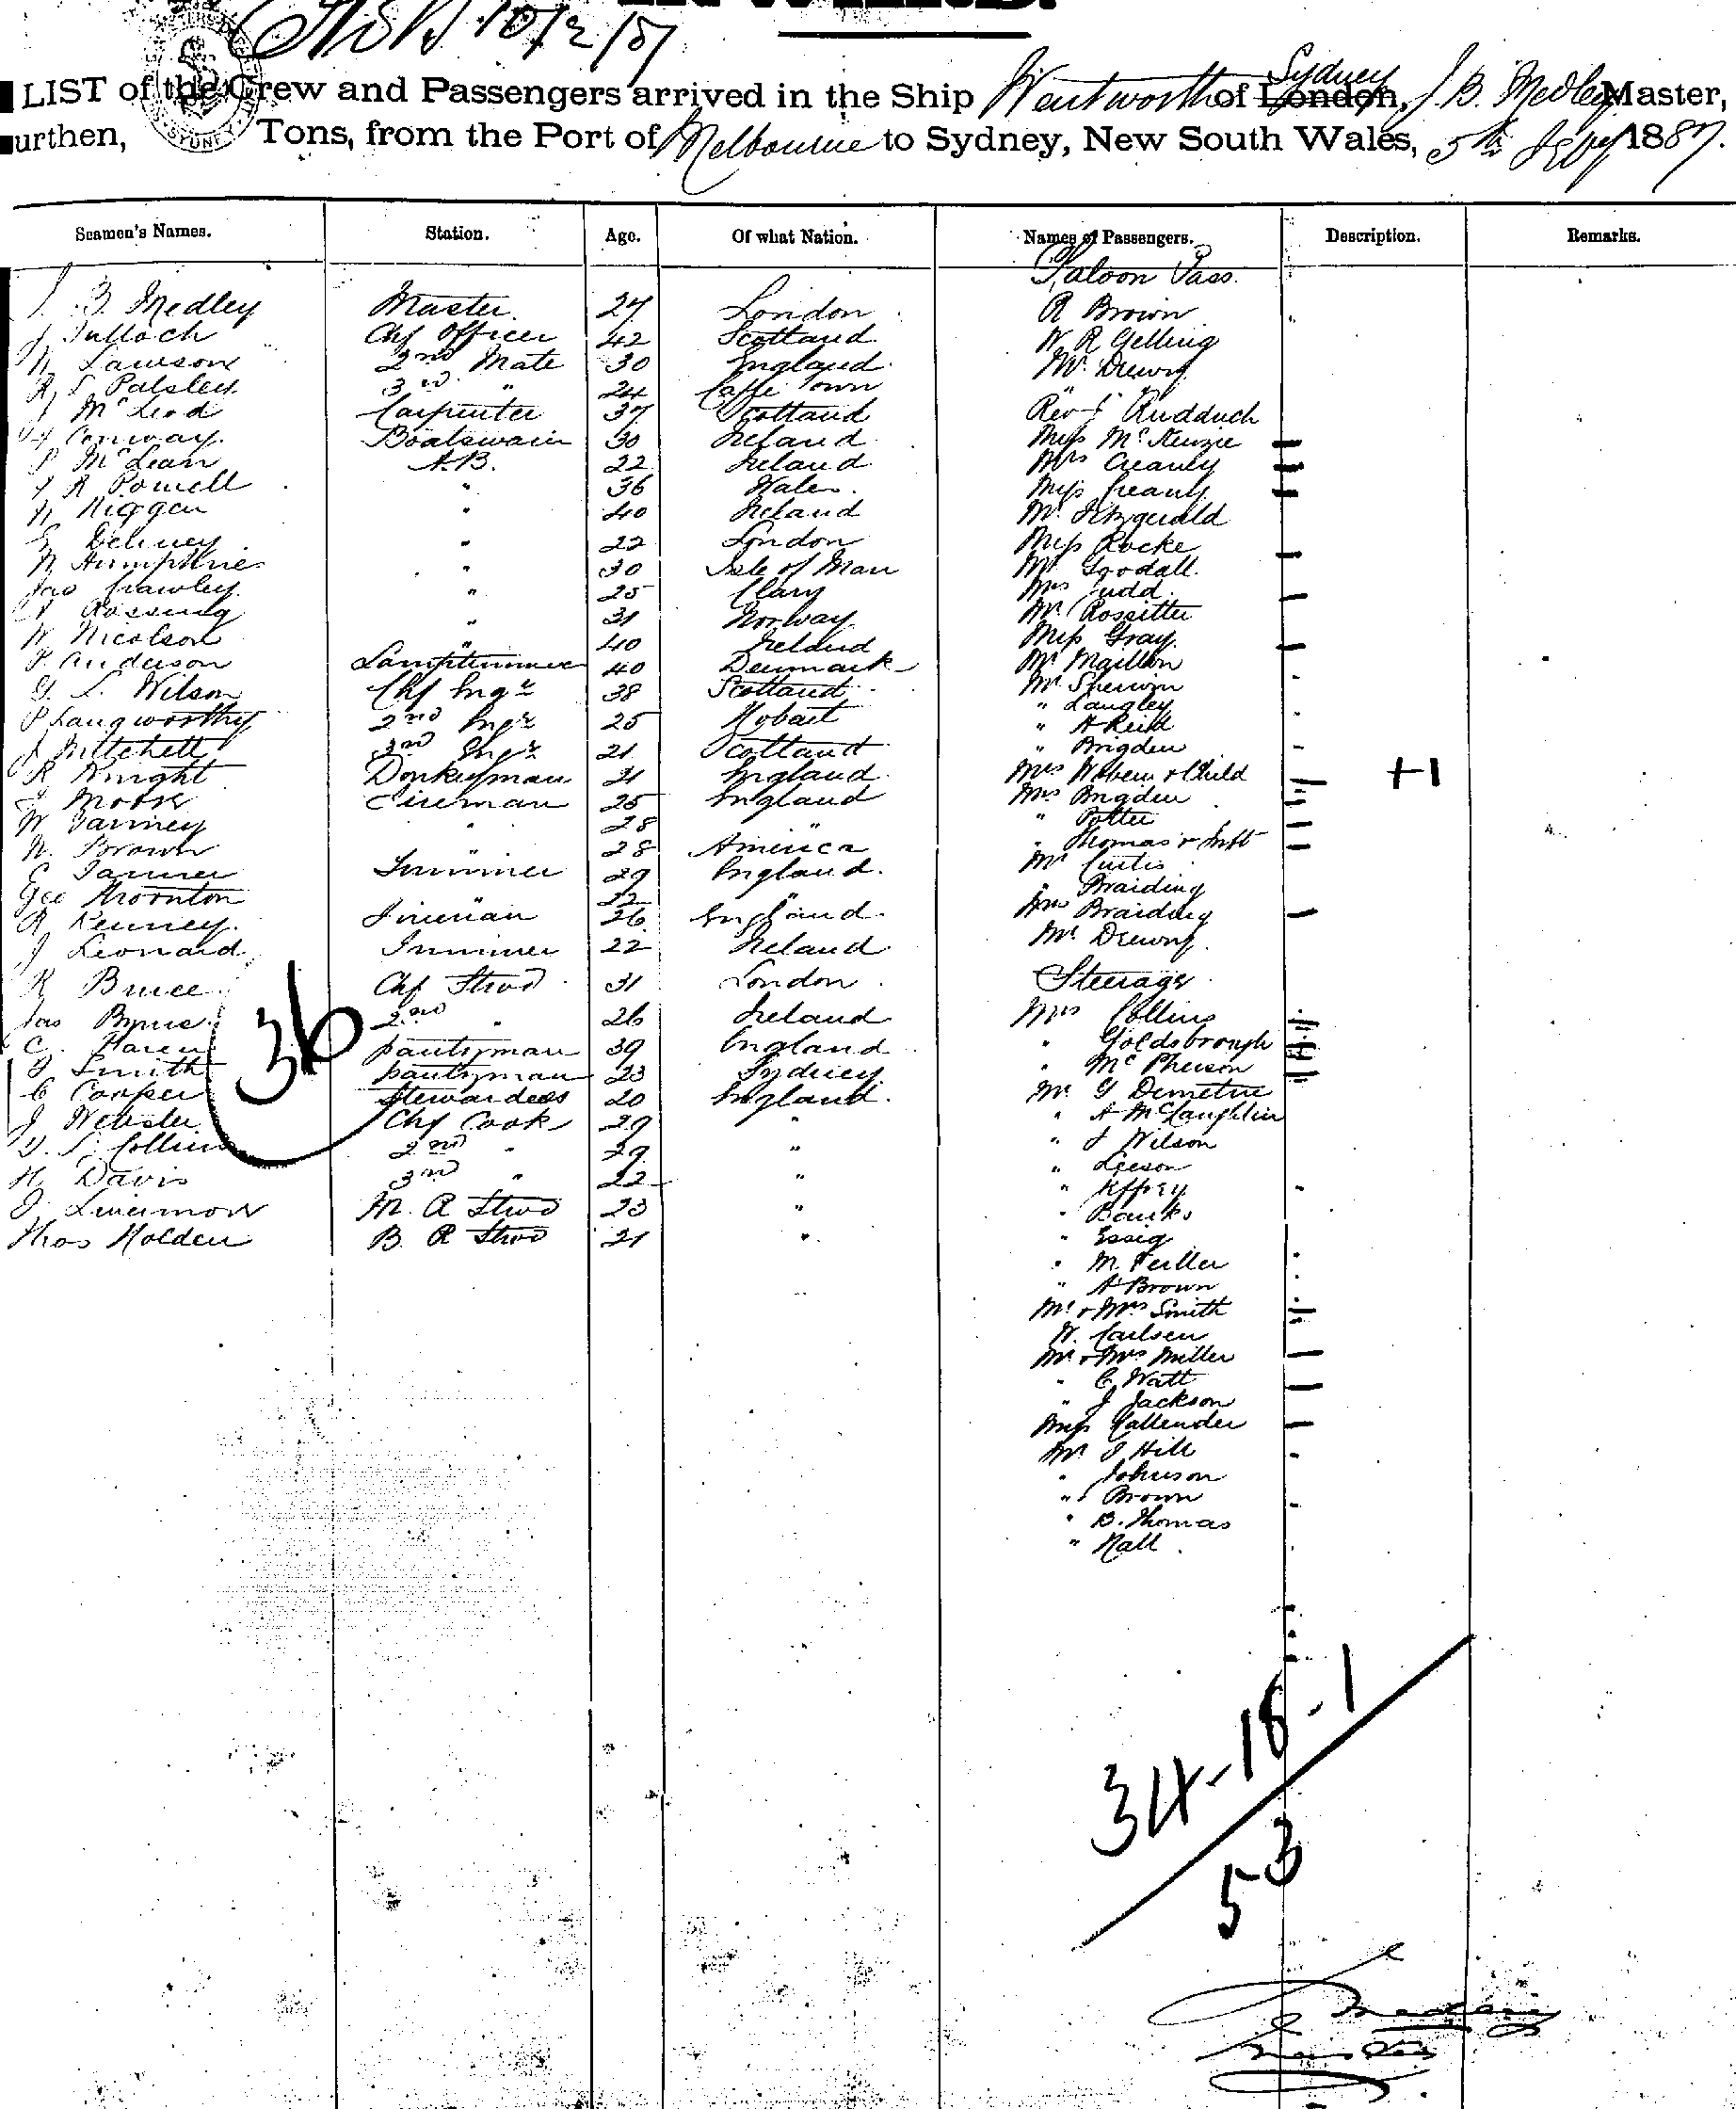 LIST of the Crew and Passengers arrived in the Ship Wentworth of London, Sydney J. B. Medley Master,
urthen, Tons, from the Port of Melbourne to Sydney, New South Wales, 5th Feby 1887.
Seamen's Names. Station. Age. Of what Nation. Names of Passengers. Description. Remarks.
Saloon Pass.
J. B. Medley Master. 27 London R Brown
J Tulloch Chf Officer 42 Scotland W. R Gelling
W Lawson 2nd Mate 30 England Mr Drewry
3rd " 24 Cape Town
J McLeod Carpenter 37 Scotland Rev Rudduch
Conway. Boatswain 30 Ireland Miss McKenzie
P McLean A.B. 22 Ireland Mrs Creaney
R Powell " 36 Wales. Miss Creany
" 40 Ireland Mr Fitzgerald
" 22 London Miss Rocke
W Humphries " 30 Isle of Man Mr Goodall.
Jas Crawley. " 25 Clary Mrs Judd.
Rossing " 31 Norway Mr Rossitter
W Nicolson " 40 Ireland Miss Gray
P. Anderson Lamptrimmer 40 Denmark
G. L. Wilson Chf Engr 38 Scotland Mr Sherwin
P Langworthy 2nd Engr 25 Hobart " Langley
J Mitchell 3rd Engr 21 Scotland " A Reid
R Knight Donkeyman 31 England " Brigden
J Moore Fireman 25 England Mrs & Child +1
W " 28 " Mrs Brigden
W. Brown " 28 America " Potter
E Tanner Trimmer 29 England. " Thomas & Inft
Geo Thornton " 22 " Mr Curtis
R Kenney. Fireman 26 England " Braiding
J Leonard Trimmer 22 Ireland Mrs Braiding
Mr Drewry.
R Bruce Chf Stwd 31 London Steerage
Jas Byrne 2nd " 26 Ireland Mrs Collins
C. pantryman 39 England " Goldsbrough
J Smith pantryman 23 Sydney " McPherson
C Cooper Stewardess 20 England. Mr G Demetrie
J Webster Chf Cook 29 " " A McLaughlin
Collins 2nd " 29 " " J Wilson
H. Davis 3rd " 22 " " Leeson
J. Linemore M. R Stwd 23 " " Jeffrey
Thos Holden B. R Stwd 21 " " Banks
36
" Essig
" M. Fuller
" A Brown
Mr & Mrs Smith
W. Carlsen
Mr & Mrs Miller
" C. Watt
" J Jackson
Miss Callender
Mr J Hill
" Johnson
" Brown
" B. Thomas
" Hall
34-18-1
53